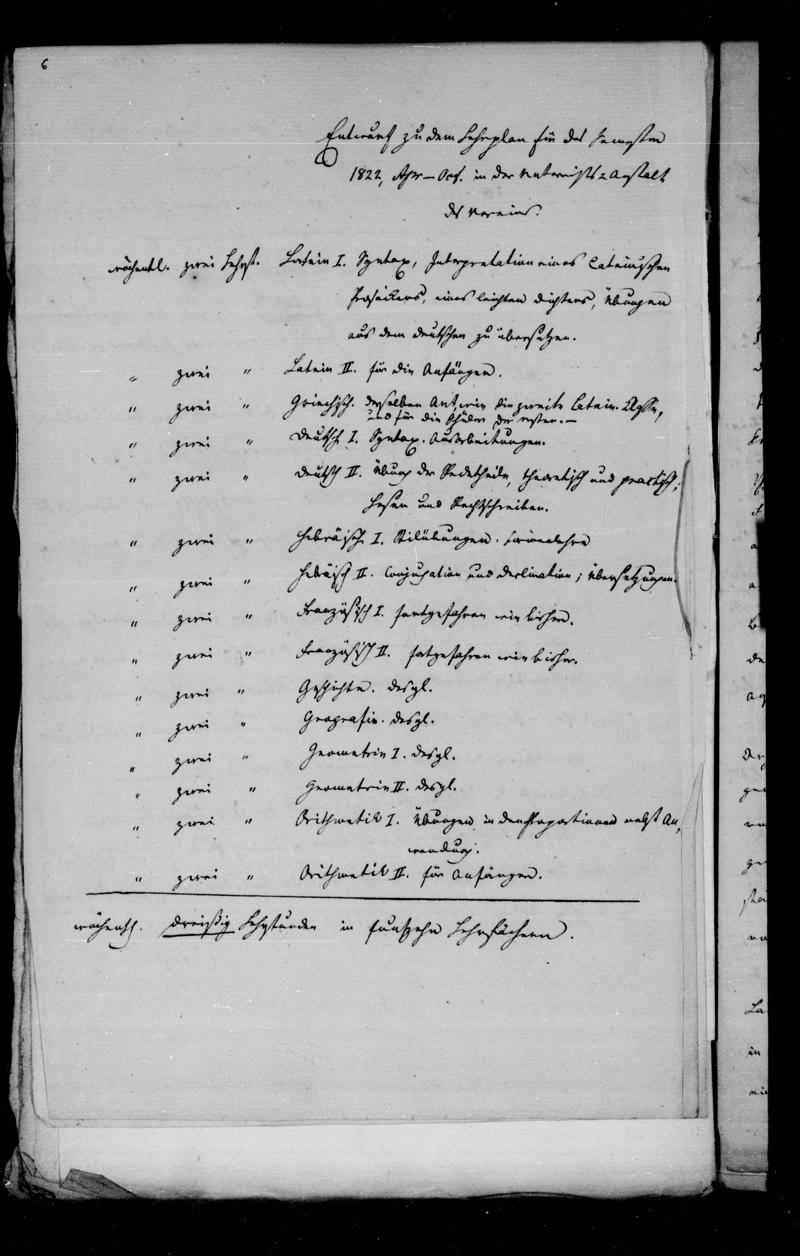 6
Entwurf zu dem Lehrplan für das Semester
1822, Apr – Oct. in der Unterrichts-Anstalt
des Vereins.
wöchentl. zwei Lehrst. Latein I. Syntax, Interpretation eines Lateinischen
Prosaikers, eines leichten Dichters, Übungen
aus dem Deutschen zu übersetzen.
" zwei " Latein II. für die Anfänger.
" zwei " Griechisch. derselben Art, wie die zweite Latein. Classe,
und für die Schüler der ersten. –
" zwei " Deutsch I. Syntax. Ausarbeitungen.
" zwei " Deutsch II. Übung der Redetheile, theoretisch und practisch;
Lesen und Rechtschreiben.
" zwei " Hebräisch I. Stilübungen. Formenlehre
" zwei " Hebräisch II. Conjugation und Declination; Übersetzungen.
" zwei " Französisch I. fortgefahren wie bisher.
" zwei " Französisch II. fortgefahren wie bisher.
" zwei " Geschichte. desgl.
" zwei " Geografie. desgl.
" zwei " Geometrie I. desgl.
" zwei " Geometrie II. desgl.
" zwei " Arithmetik I. Übungen in den Proportionen nebst An,
wendung.
" zwei " Arithmetik II. für Anfänger.
wöchentl. dreißig Lehrstunden in funfzehn Lehrfächern.